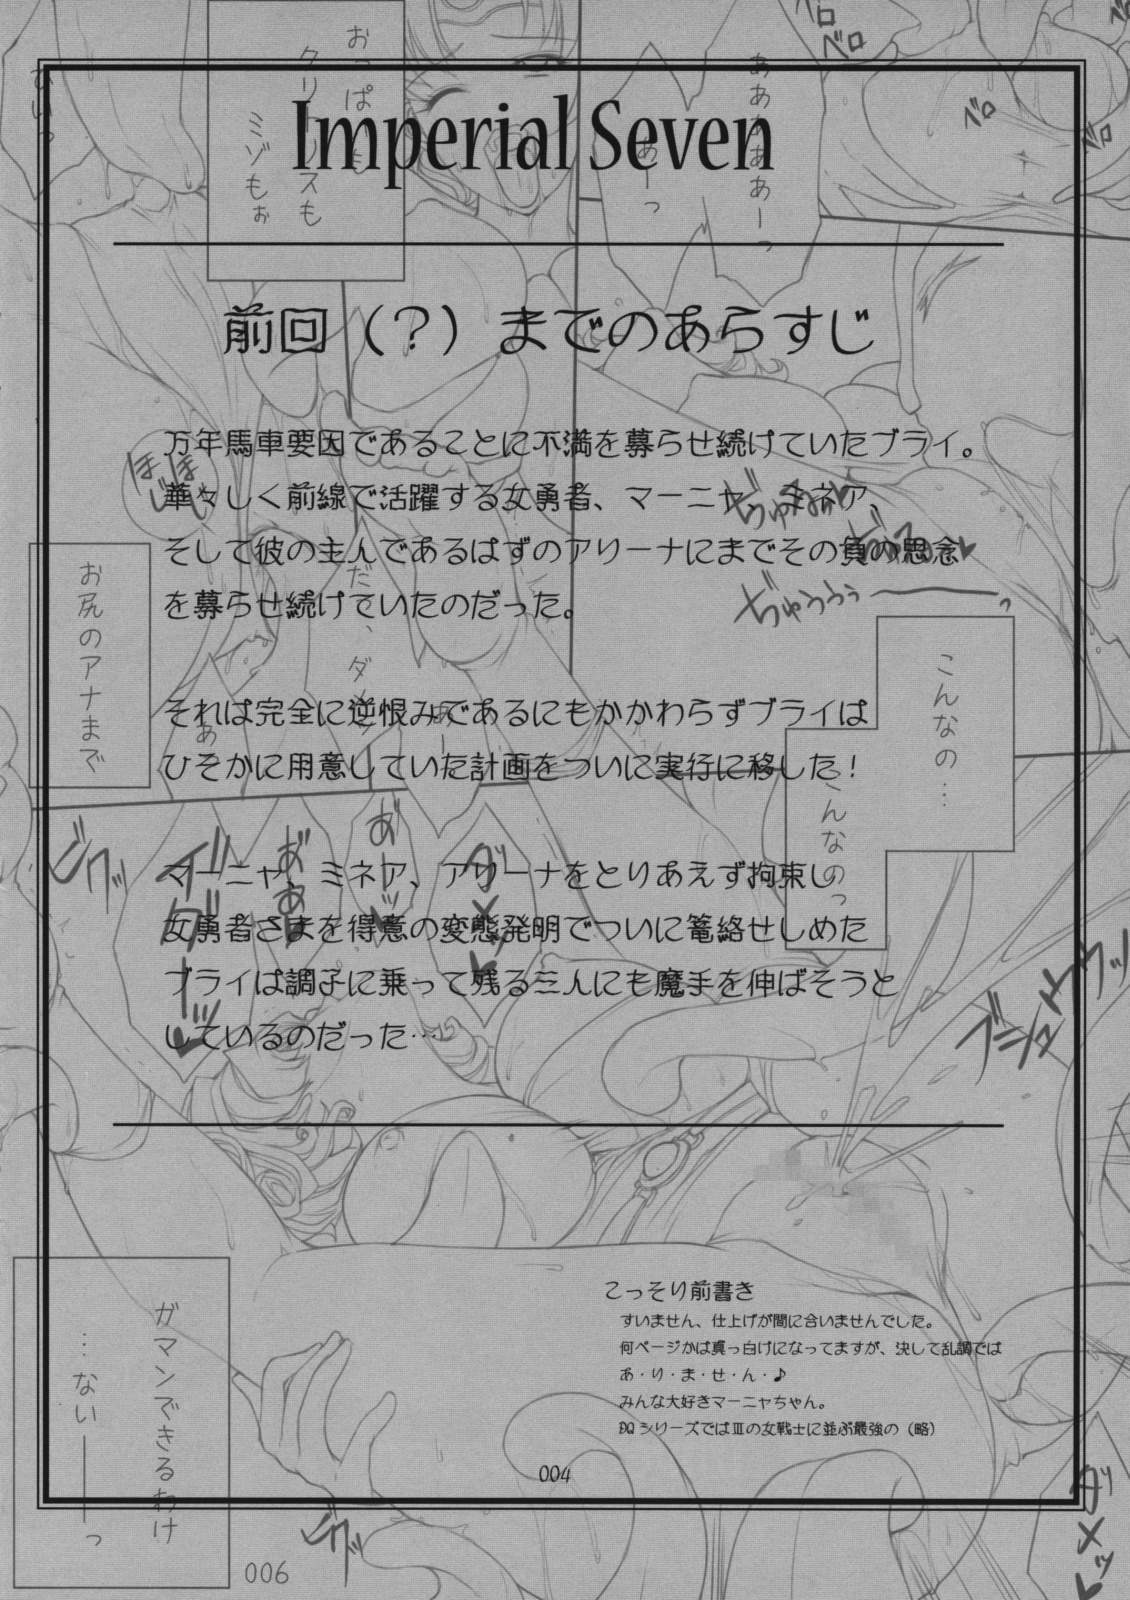 Imperial Seven
前回(?)までのあらすじ
万年馬車要因であることに不満を募らせ続けていたブライ。
華々しく前線で活躍する女勇者、マーニャ、ミネア、
そして彼の主人であるはずのアリーナにまでその負の思念
を募らせ続けていたのだった。
それは完全に逆恨みであるにもかかわらずブライは
ひそかに用意していた計画をついに実行に移した!
マーニャ、ミネア、アリーナをとりあえず拘束し
女勇者さまを得意の変態発明でついに篭絡せしめた
ブライは調子に乗って残る三人にも魔手を伸ばそうと
しているのだった…
こっそり前書き
すいません、仕上げが間に合いませんでした。
何ページかは真っ白けになってますが、決して乱調では
あ・り・ま・せ・ん・♪
みんな大好きマーニャちゃん。
DQシリーズではⅢの女戦士に並ぶ最強の(略)
004
ベロ
ベロ
ベロ
ベロ
ああああああーっ
お尻のアナまで
こんなの…
こんなのっ
ビクッ
ガマンできるわけ
…ない――っ
ビクッ
006